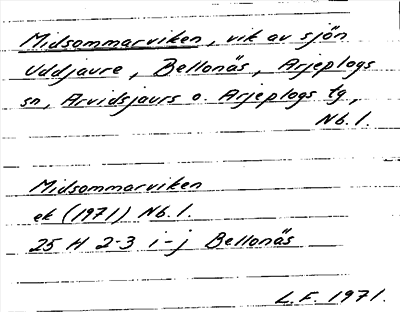 Midsommarviken, vik av sjön
Uddjaure, Bellonäs, Arjeplogs
sn, Arvidsjaurs o. Arjeplogs tg,
Nb.l.
Midsommarviken
ek (1971) Nb.l.
25 H 2-3 i-j Bellonäs
L.F. 1971.